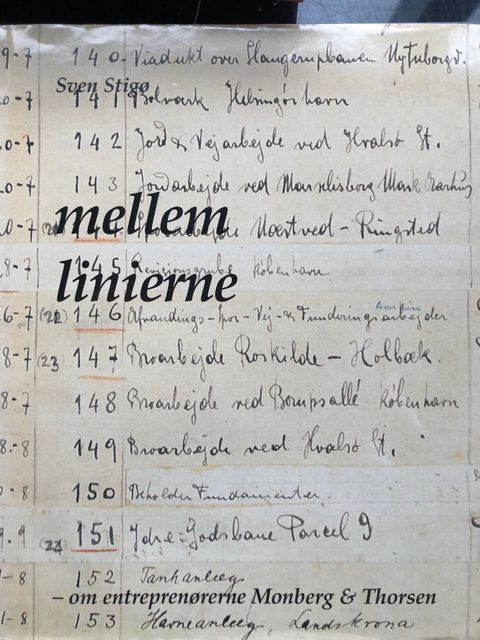 9-7 140 Viadukt over Slangerupbanen Nytuborgv.
Sven Stigø
0-7 141 Bolværk Helsingörshavn
0-7 142 Jord & Vejarbejde ved Hvalsø St.
0-7 143 Jordarbejde ved Marselisborg Mark Aarhus
mellem
0-7 Næstved - Ringsted
8-7 145 Revisionsgrube København
linierne
6-7 (22) 146 Afvandings-spor-Vej-& Funderingsarbejder
8-7 (23 147 Broarbejde Roskilde - Holbæk.
8-7 148 Broarbejde ved København
8.-8 149 Broarbejde ved Hvalsø St.
0-8 150 Beholder Fundamenter.
9.9 (24 151 Godsbane Parcel 9
1-8 152 Tankanlæg
– om entreprenørerne Monberg & Thorsen
1-8 153 Havneanlæg, Landskrona